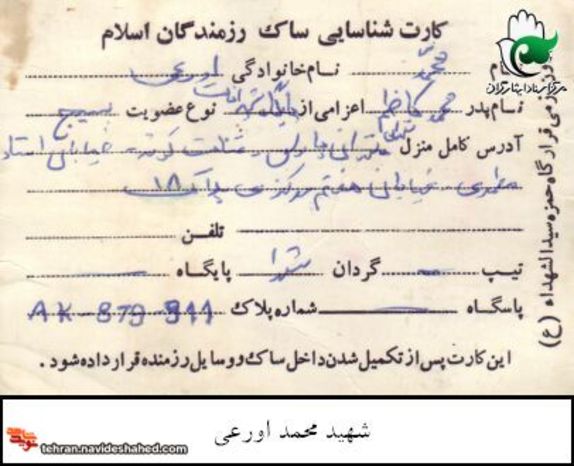 کارت شناسایی ساک رزمندگان اسلام
نام محمد نام خانوادگی اورعی
نام پدر محمد کاظم اعزامی از نوع عضویت بسیج
آدرس کامل منزل خیابان استاد
مطهری - خیابان هفتم مرکزی پلاک ۱۸
تلفن
تیپ گردان پایگاه
پاسگاه شماره پلاک AK-879-911
این کارت پس از تکمیل شدن داخل ساک و وسایل رزمنده قرار داده شود .
رزمی قرارگاه حمزه سیدالشهداء (ع)
مرکز اسناد ایثارگران
شهید محمد اورعی
tehran.navideshahed.com